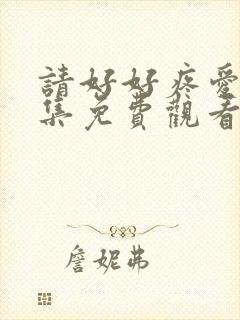 請好好疼愛
集免費觀看
詹妮弗